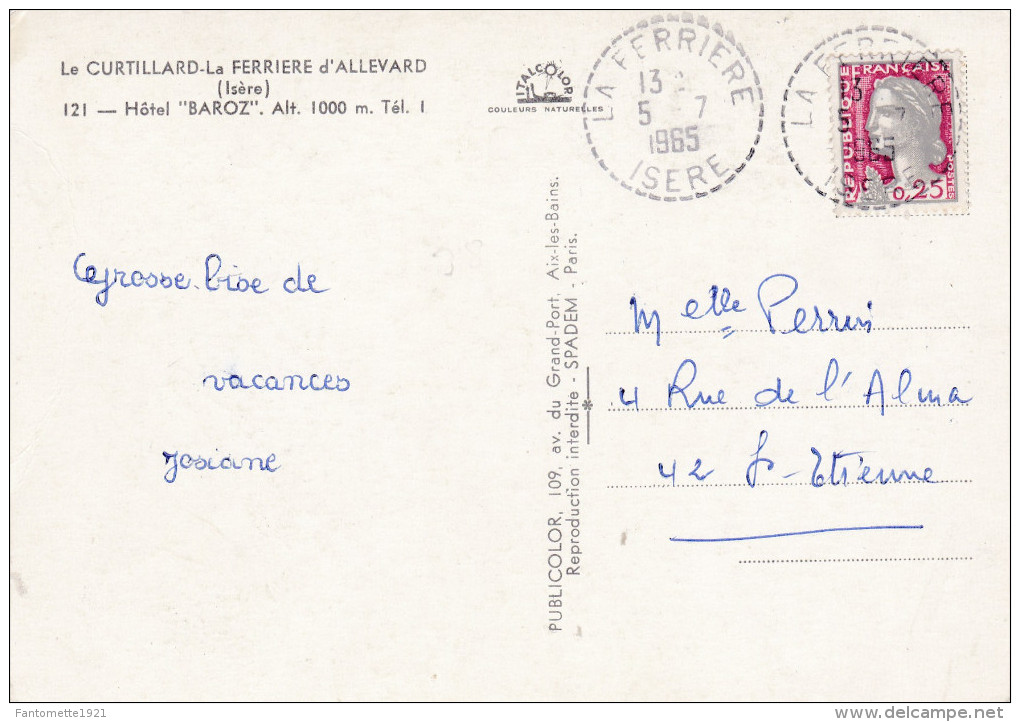 Le CURTILLARD-La FERRIERE d'ALLEVARD
(Isère)
121 — Hôtel "BAROZ". Alt. 1000 m. Tél. 1
ITALCOLOR
COULEURS NATURELLES
LA FERRIERE
13
5 - 7
1965
ISERE
LA FERRIERE
REPUBLIQUE FRANÇAISE
0,25
POSTES
Grosse bise de
vacances
Josiane
PUBLICOLOR, 109, av. du Grand-Port. Aix-les-Bains.
Reproduction interdite - SPADEM - Paris.
Melle Perrin
4 Rue de l'Alma
42 St-Etienne
Fantomette1921
delcampe.net